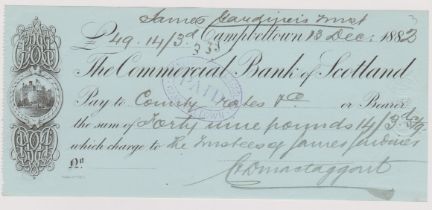 James Gardiner's Trust
£49.14/3d Campbeltown 13 Dec: 1882
The Commercial Bank of Scotland
PAID
Pay to County rates &c or Bearer
the sum of Forty nine pounds 14/3d Stg
which charge to the Trustees of James Gardiner
No